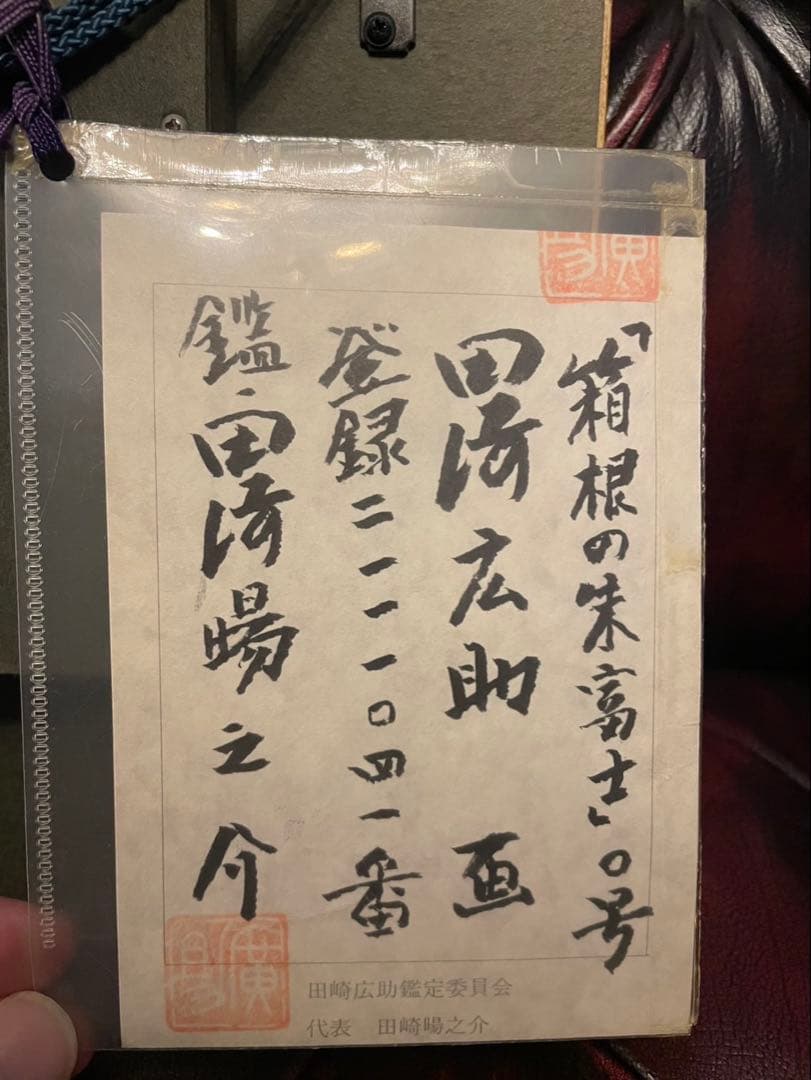 「箱根の朱富士」〇号
田崎広助 画
登録二一一一〇四一番
鑑・田崎暘之介
田崎広助鑑定委員会
代表 田崎暘之介